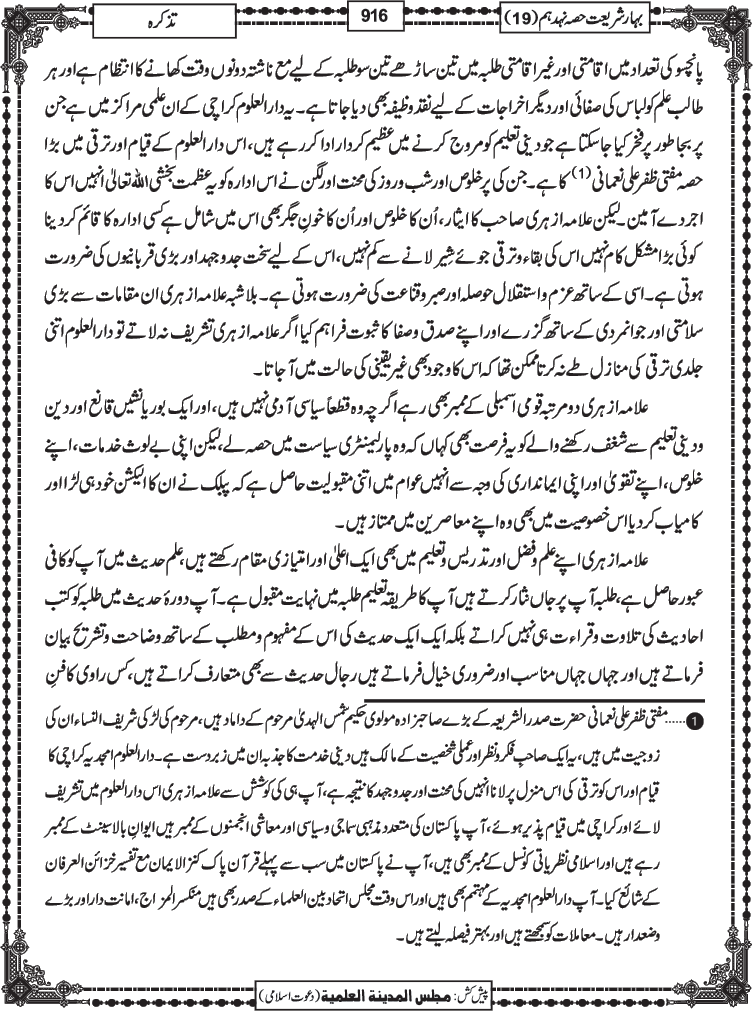 بہار شریعت حصہ نہدہم (19)
916
تذکرہ
پانچسو کی تعداد میں اقامتی اور غیر اقامتی طلبہ میں تین ساڑھے تین سو طلبہ کے لیے مع ناشتہ دونوں وقت کھانے کا انتظام ہے اور ہر
طالب علم کو لباس کی صفائی اور دیگر اخراجات کے لیے نقد وظیفہ بھی دیا جاتا ہے۔ یہ دارالعلوم کراچی کے ان علمی مراکز میں ہے جن
پر بجا طور پر فخر کیا جا سکتا ہے جو دینی تعلیم کو مروج کرنے میں عظیم کردار ادا کر رہے ہیں، اس دارالعلوم کے قیام اور ترقی میں بڑا
حصہ مفتی ظفر علی نعمانی (1) کا ہے۔ جن کی پر خلوص اور شب و روز کی محنت اور لگن نے اس ادارہ کو یہ عظمت بخشی اللہ تعالیٰ انہیں اس کا
اجر دے آمین۔ لیکن علامہ ازہری صاحب کا ایثار، اُن کا خلوص اور اُن کا خونِ جگر بھی اس میں شامل ہے کسی ادارہ کا قائم کر دینا
کوئی بڑا مشکل کام نہیں اس کی بقاء و ترقی جوئے شِیر لانے سے کم نہیں، اس کے لیے سخت جدوجہد اور بڑی قربانیوں کی ضرورت
ہوتی ہے۔ اسی کے ساتھ عزم و استقلال حوصلہ اور صبر و قناعت کی ضرورت ہوتی ہے۔ بلاشبہ علامہ ازہری ان مقامات سے بڑی
سلامتی اور جوانمردی کے ساتھ گزرے اور اپنے صدق و صفا کا ثبوت فراہم کیا اگر علامہ ازہری تشریف نہ لاتے تو دارالعلوم اتنی
جلدی ترقی کی منازل طے نہ کرتا ممکن تھا کہ اس کا وجود بھی غیر یقینی کی حالت میں آ جاتا۔
علامہ ازہری دو مرتبہ قومی اسمبلی کے ممبر بھی رہے اگرچہ وہ قطعاً سیاسی آدمی نہیں ہیں، اور ایک بوریا نشیں قانع اور دین
و دینی تعلیم سے شغف رکھنے والے کو یہ فرصت بھی کہاں کہ وہ پارلیمنٹری سیاست میں حصہ لے، لیکن اپنی بے لوث خدمات، اپنے
خلوص، اپنے تقویٰ اور اپنی ایمانداری کی وجہ سے انہیں عوام میں اتنی مقبولیت حاصل ہے کہ پبلک نے ان کا الیکشن خود ہی لڑا اور
کامیاب کر دیا اس خصوصیت میں بھی وہ اپنے معاصرین میں ممتاز ہیں۔
علامہ ازہری اپنے علم و فضل اور تدریس و تعلیم میں بھی ایک اعلیٰ اور امتیازی مقام رکھتے ہیں، علم حدیث میں آپ کو کافی
عبور حاصل ہے، طلبہ آپ پر جاں نثار کرتے ہیں آپ کا طریقۂ تعلیم طلبہ میں نہایت مقبول ہے۔ آپ دورۂ حدیث میں طلبہ کو کتب
احادیث کی تلاوت و قراءت ہی نہیں کراتے بلکہ ایک ایک حدیث کی اس کے مفہوم و مطلب کے ساتھ وضاحت و تشریح بیان
فرماتے ہیں اور جہاں جہاں مناسب اور ضروری خیال فرماتے ہیں رجال حدیث سے بھی متعارف کراتے ہیں، کس راوی کا فنِ
1 ..... مفتی ظفر علی نعمانی حضرت صدرالشریعہ کے بڑے صاحبزادہ مولوی حکیم شمس الہدیٰ مرحوم کے داماد ہیں، مرحوم کی لڑکی شریف النساء ان کی
زوجیت میں ہیں، یہ ایک صاحبِ فکر و نظر اور عملی شخصیت کے مالک ہیں دینی خدمت کا جذبہ ان میں زبردست ہے۔ دارالعلوم امجدیہ کراچی کا
قیام اور اس کو ترقی کی اس منزل پر لانا انہیں کی محنت اور جدوجہد کا نتیجہ ہے، آپ ہی کی کوشش سے علامہ ازہری اس دارالعلوم میں تشریف
لائے اور کراچی میں قیام پذیر ہوئے، آپ پاکستان کی متعدد مذہبی سماجی و سیاسی اور معاشی انجمنوں کے ممبر ہیں ایوانِ بالا سینٹ کے ممبر
رہے ہیں اور اسلامی نظریاتی کونسل کے ممبر بھی ہیں، آپ نے پاکستان میں سب سے پہلے قرآن پاک کنز الایمان مع تفسیر خزائن العرفان
کے شائع کیا۔ آپ دارالعلوم امجدیہ کے مہتمم بھی ہیں اور اس وقت مجلس اتحاد بین العلماء کے صدر بھی ہیں منکسر المزاج، امانت دار اور بڑے
وضعدار ہیں۔ معاملات کو سمجھتے ہیں اور بہتر فیصلہ لیتے ہیں۔
پیش کش: مجلس المدینة العلمیة (دعوت اسلامی)